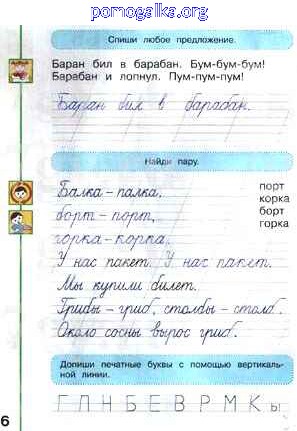 pomogalka.org
Спиши любое предложение.
Баран бил в барабан. Бум-бум-бум!
Барабан и лопнул. Пум-пум-пум!
Баран бил в барабан.
Найди пару.
Балка – палка.
борт – порт,
горка – корка.
У нас пакет. У нас пакет.
Мы купили билет.
Грибы – гриб, столбы – столб.
Около сосны вырос гриб.
порт
корка
борт
горка
Допиши печатные буквы с помощью вертикаль-
ной линии.
Г П Н Б Е В Р М К ы
6